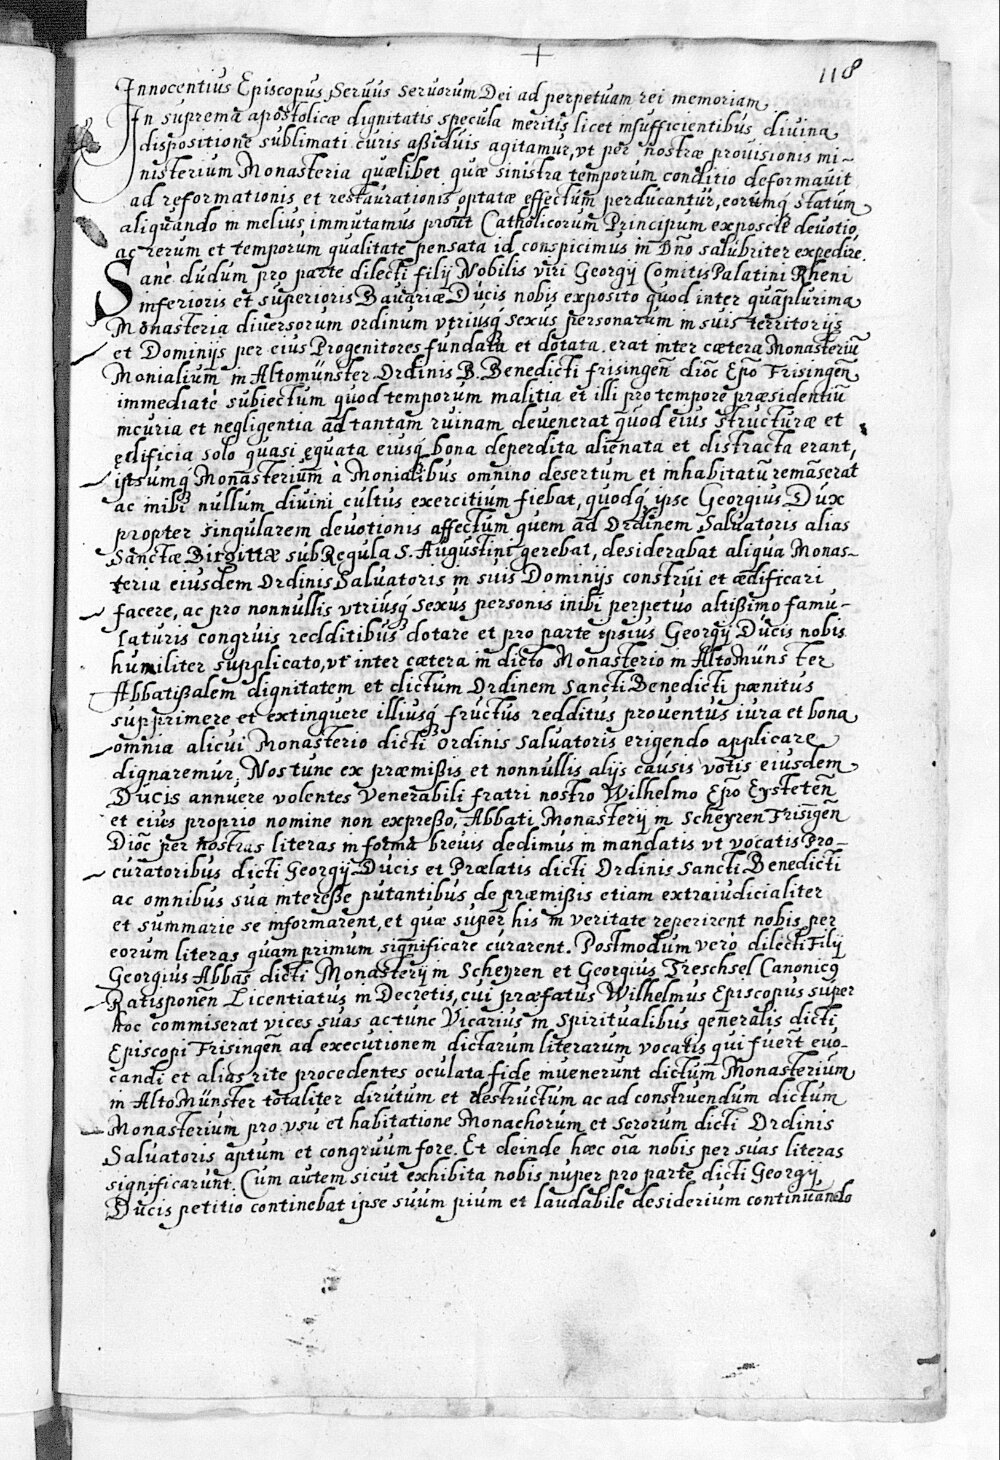 118
Innocentius Episcopus Seruus seruorum Dei ad perpetuam rei memoriam
In suprema apostolicæ dignitatis specula meritis licet insufficientibus diuina
dispositione sublimati curis aßiduis agitamur, vt per nostræ prouisionis mi-
nisterium Monasteria quælibet quæ sinistra temporum conditio deformauit
ad reformationis et restaurationis optatæ effectum perducantur, eorumq̃ statum
aliquando in melius immutamus prout Catholicorum Principum exposcit deuotio,
ac rerum et temporum qualitate pensata id conspicimus in Dño salubriter expedire.
Sanè dudum pro parte dilecti filij Nobilis viri Georgij Comitis Palatini Rheni
inferioris et superioris Bauariæ Ducis nobis exposito quod inter quamplurima
Monasteria diuersorum ordinum vtriusq̃ sexus personarum in suis territorijs
et Dominijs per eius Progenitores fundata et dotata erat inter cætera Monasteriũ
Monialium in Altomünster Ordinis B. Benedicti frisingeñ dioc̃ Ep̃o Frisingeñ
immediatè subiectum quod temporum malitia et illi pro tempore præsidentiũ
incuria et negligentia ad tantam ruinam deuenerat quod eius structuræ et
ędificia solo quasi ęquata eiusq̃ bona deperdita alienata et distracta erant,
ipsumq̃ Monasterium à Monialibus omnino desertum et inhabitatũ remãserat
ac inibi nullum diuini cultus exercitium fiebat, quodq̃ ipse Georgius Dux
propter singularem deuotionis affectum quem ad Ordinem Saluatoris alias
Sanctæ Birgittæ sub Regula S. Augustini gerebat, desiderabat aliqua Monas-
teria eiusdem Ordinis Saluatoris in suis Dominijs construi et ædificari
facere, ac pro nonnullis vtriusq̃ sexus personis inibi perpetuo altißimo famu-
laturis congruis redditibus dotare et pro parte ipsius Georgij Ducis nobis
humiliter supplicato, vt inter cætera in dicto Monasterio in AltoMünster
Abbatißalem dignitatem et dictum Ordinem Sancti Benedicti pænitus
supprimere et extinguere illiusq̃ fructus redditus prouentus iura et bona
omnia alicui Monasterio dicti Ordinis Saluatoris erigendo applicare
dignaremur, Nos tunc ex præmißis et nonnullis alijs causis votis eiusdem
Ducis annuere volentes Venerabili fratri nostro Wilhelmo Ep̃o Eysteteñ
et eius proprio nomine non expreßo, Abbati Monasterij in Scheyren Frisingeñ
Dioc̃ per nostras literas in forma breuis dedimus in mandatis vt vocatis Pro-
curatoribus dicti Georgij Ducis et Prælatis dicti Ordinis Sancti Benedicti
ac omnibus sua intereße putantibus de præmißis etiam extraiudicialiter
et summarie se informarent, et quæ super his in veritate reperirent nobis per
eorum literas quamprimum significare curarent. Postmodum verò dilecti Filij
Georgius Abbas dicti Monasterij in Scheyren et Georgius Treschsel Canonicq
Ratisponeñ Licentiatus in Decretis, cui præfatus Wilhelmus Episcopus super
hoc commiserat vices suas ac tunc Vicarius in Spiritualibus generalis dicti
Episcopi Frisingeñ ad executionem dictarum literarum vocatis qui fuerñt euo-
candi et alias rite procedentes oculata fide inuenerunt dictum Monasterium
in AltoMünster totaliter dirutum et destructum ac ad construendum dictum
Monasterium pro vsu et habitatione Monachorum et Sororum dicti Ordinis
Saluatoris aptum et congruum fore. Et deinde hæc oĩa nobis per suas literas
significarunt. Cum autem sicut exhibita nobis nuper pro parte dicti Georgij
Ducis petitio continebat ipse suum pium et laudabile desiderium continuando